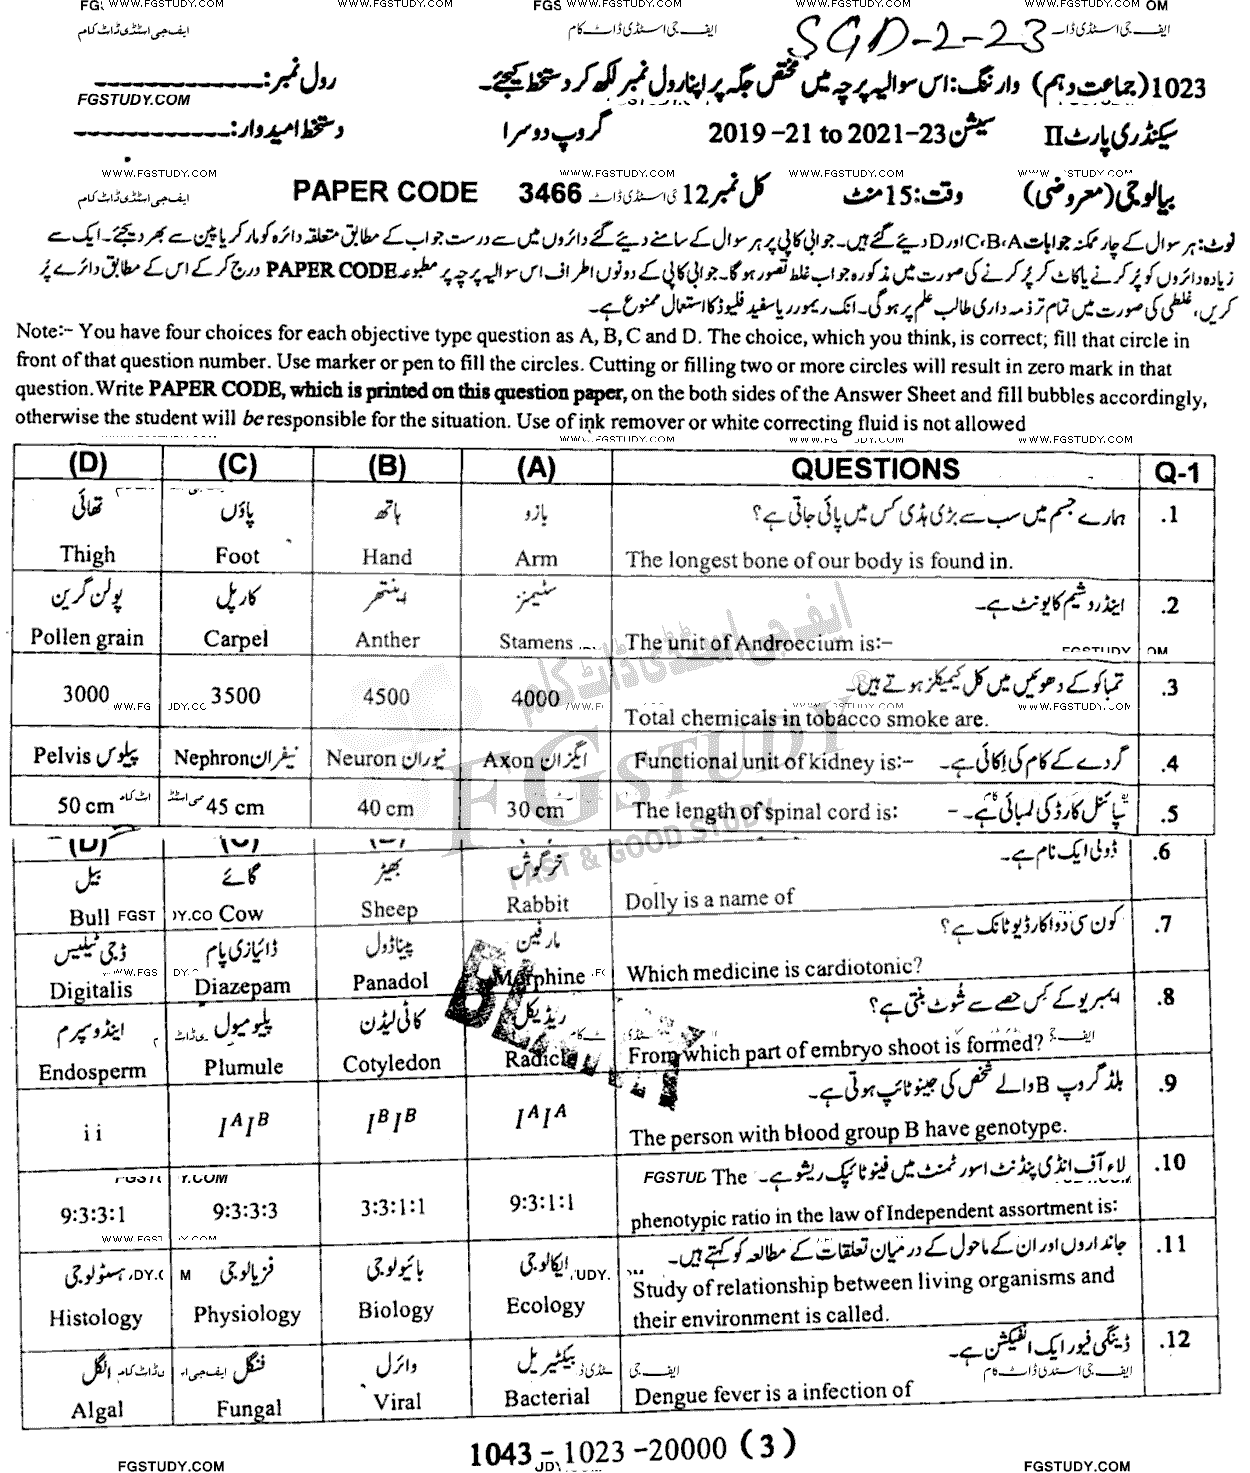 SGD-2-23
1023 (جماعت دہم) وارننگ: اس سوالیہ پرچہ میں مختص جگہ پر اپنا رول نمبر لکھ کر دستخط کیجئے۔ رول نمبر: ------------
FGSTUDY.COM
سیکنڈری پارٹ II سیشن 2019 -21 to 2021-23 گروپ دوسرا دستخط امیدوار: ------------
WWW.FGSTUDY.COM WWW.FGSTUDY.COM WWW.FGSTUDY.COM
بیالوجی (معروضی) وقت: 15 منٹ کل نمبر 12 PAPER CODE 3466
نوٹ: ہر سوال کے چار ممکنہ جوابات C،B،A اور D دیئے گئے ہیں۔ جوابی کاپی پر ہر سوال کے سامنے دیئے گئے دائروں میں سے درست جواب کے مطابق متعلقہ دائرہ کو مارکر یا پین سے بھر دیجئے۔ ایک سے
زیادہ دائروں کو پُر کرنے یا کاٹ کر پُر کرنے کی صورت میں مذکورہ جواب غلط تصور ہوگا۔ جوابی کاپی کے دونوں اطراف اس سوالیہ پرچہ پر مطبوعہ PAPER CODE درج کر کے اس کے مطابق دائرے پُر
کریں، غلطی کی صورت میں تمام تر ذمہ داری طالب علم پر ہوگی۔ انک ریموور یا سفید فلیوڈ کا استعمال ممنوع ہے۔
Note:- You have four choices for each objective type question as A, B, C and D. The choice, which you think, is correct; fill that circle in
front of that question number. Use marker or pen to fill the circles. Cutting or filling two or more circles will result in zero mark in that
question. Write PAPER CODE, which is printed on this question paper, on the both sides of the Answer Sheet and fill bubbles accordingly,
otherwise the student will be responsible for the situation. Use of ink remover or white correcting fluid is not allowed
(D) (C) (B) (A) QUESTIONS Q-1
تھائی پاؤں ہاتھ بازو ہمارے جسم میں سب سے بڑی ہڈی کس میں پائی جاتی ہے؟ .1
Thigh Foot Hand Arm The longest bone of our body is found in.
پولن گرین کارپل اینتھر سٹیمنز اینڈروشیم کا یونٹ ہے۔ .2
Pollen grain Carpel Anther Stamens The unit of Androecium is:-
تمباکو کے دھوئیں میں کل کیمیکلز ہوتے ہیں۔ .3
3000 3500 4500 4000 Total chemicals in tobacco smoke are.
Pelvis پیلوس Nephron نیفران Neuron نیوران Axon ایگزان Functional unit of kidney is:- گردے کے کام کی اکائی ہے۔ .4
50 cm 45 cm 40 cm 30 cm The length of spinal cord is: سپائنل کارڈ کی لمبائی ہے۔ - .5
بیل گائے بھیڑ خرگوش ڈولی ایک نام ہے۔ .6
Bull Cow Sheep Rabbit Dolly is a name of
ڈجی ٹیلیس ڈائیازی پام پیناڈول مارفین کون سی دوا کارڈیوٹانک ہے؟ .7
Digitalis Diazepam Panadol Morphine Which medicine is cardiotonic?
اینڈوسپرم پلیومیول کاٹی لیڈن ریڈیکل ایمبریو کے کس حصے سے شُوٹ بنتی ہے؟ .8
Endosperm Plumule Cotyledon Radicle From which part of embryo shoot is formed?
بلڈ گروپ B والے شخص کی جینوٹائپ ہوتی ہے۔ .9
i i I^A I^B I^B I^B I^A I^A The person with blood group B have genotype.
لاء آف انڈی پنڈنٹ اسورٹمنٹ میں فینوٹائپک ریشو ہے۔ The .10
9:3:3:1 9:3:3:3 3:3:1:1 9:3:1:1 phenotypic ratio in the law of Independent assortment is:
ہسٹولوجی فزیالوجی بائیولوجی ایکالوجی جانداروں اور ان کے ماحول کے درمیان تعلقات کے مطالعہ کو کہتے ہیں۔ .11
Histology Physiology Biology Ecology Study of relationship between living organisms and
their environment is called.
الگل فنگل وائرل بیکٹیریل ڈینگی فیور ایک انفیکشن ہے۔ .12
Algal Fungal Viral Bacterial Dengue fever is a infection of
1043 - 1023 -20000 (3)
FGSTUDY.COM FGSTUDY.COM
ایف جی اسٹڈی ڈاٹ کام
FGSTUDY
FAST & GOOD STUDY